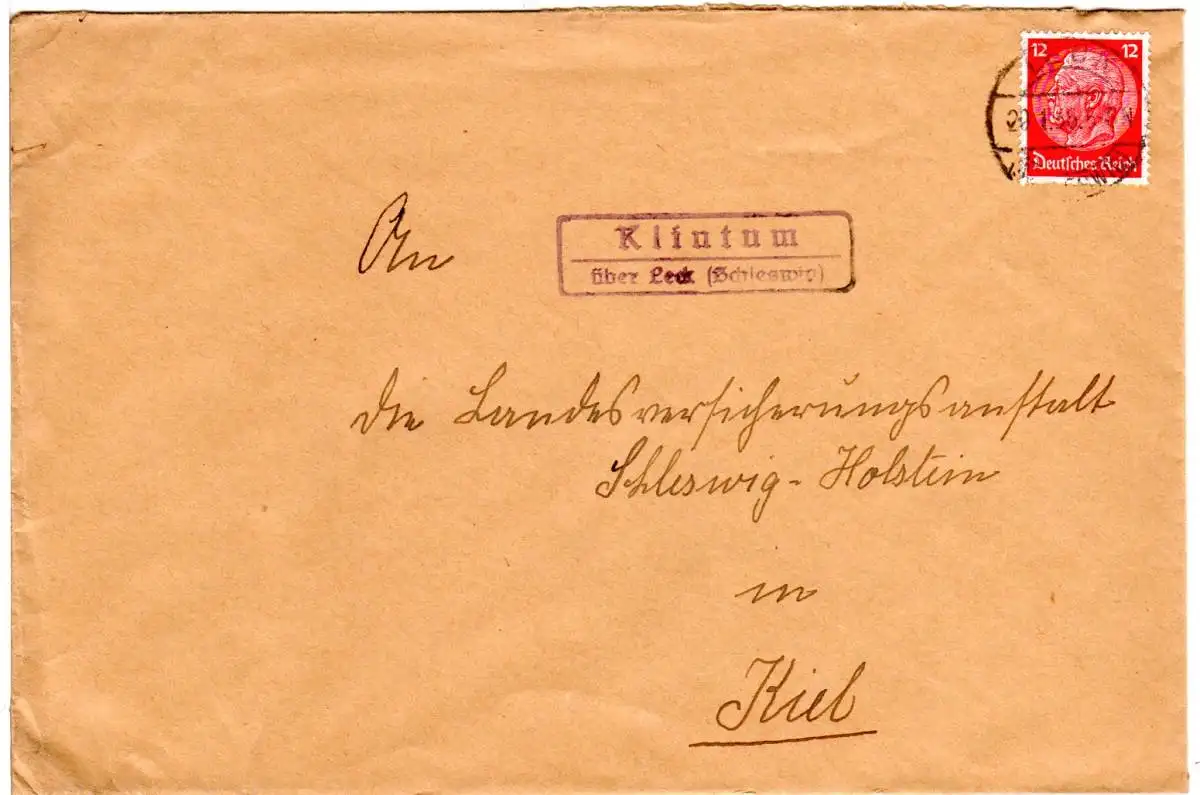 12 12
Deutsches Reich
Klintum
über Leck (Schleswig)
An
die Landesversicherungsanstalt
Schleswig-Holstein
in
Kiel